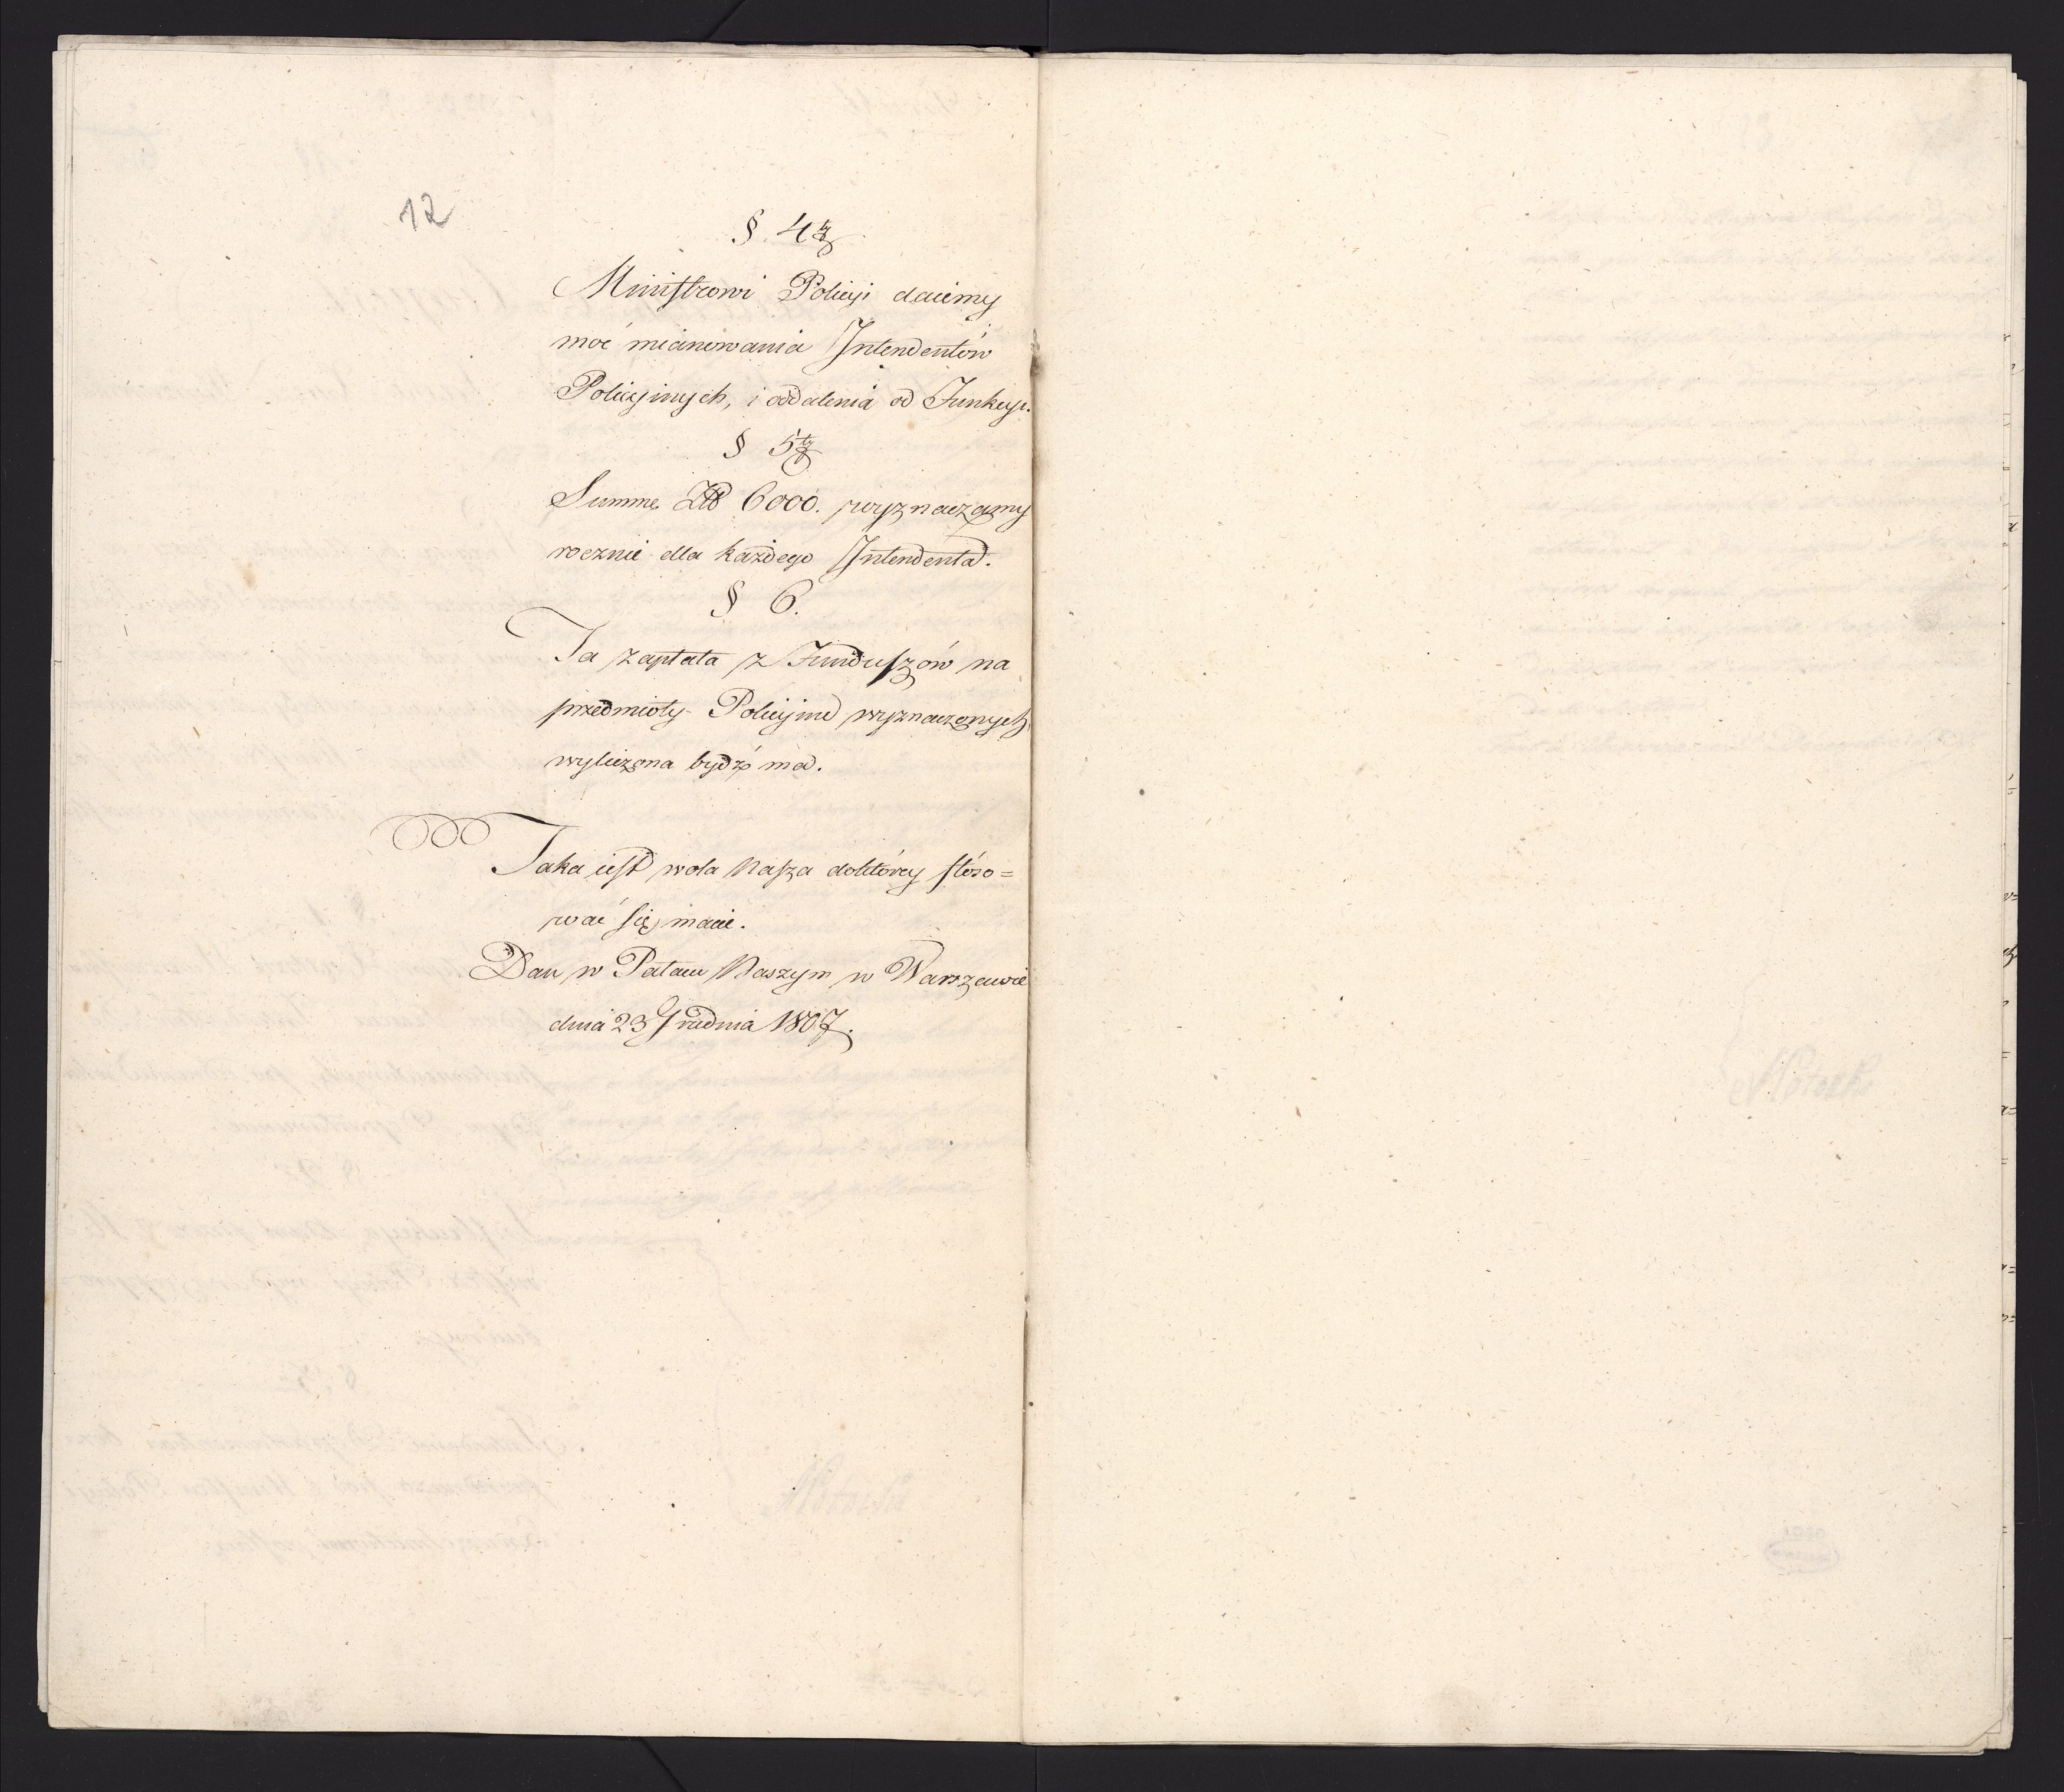 12
§ 4ty
Ministrowi Policyi daiemy
moc mianowania Intendentów
Policyinych, i oddalenia od Funkcyi.
§ 5ty
Summę Złł 6000. wyznaczamy
rocznie dla każdego Intendenta.
§ 6.
Ta zapłata z Funduszów na
przedmioty Policyine wyznaczonych
wyliczona bydź ma.
Taka iest wola Nasza doktórey stóso=
wać się macie.
Dan w Pałacu Naszym w Warszawie
dnia 23 Grudnia 1807.